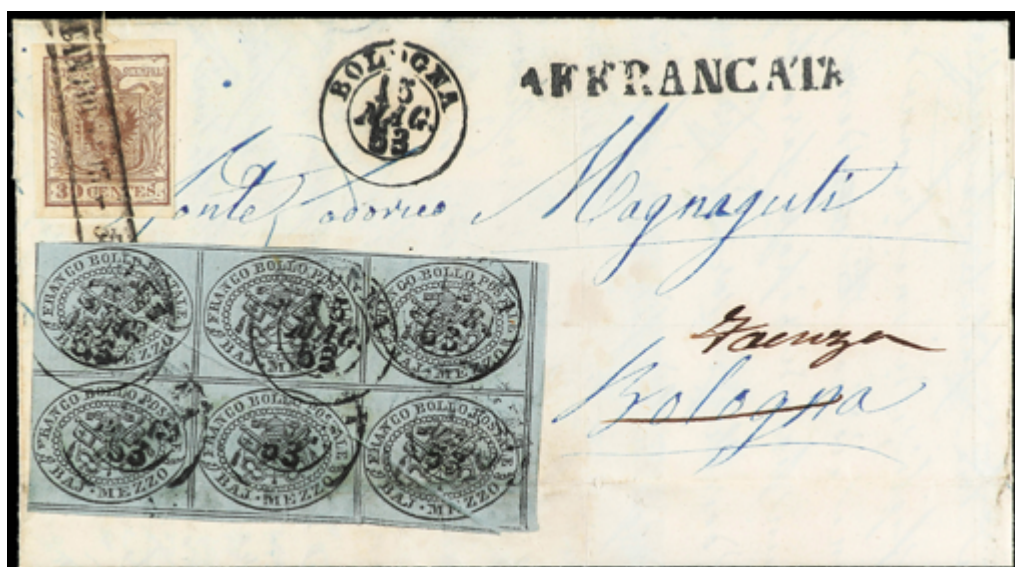 BOLOGNA
13
MAG.
53
AFFRANCATA
30 CENTES.
Conte Odorico Magnaguti
Faenza
Bologna
FRANCO BOLLO POSTALE
BAJ • MEZZO
FRANCO BOLLO POSTALE
BAJ • MEZZO
FRANCO BOLLO POSTALE
BAJ • MEZZO
FRANCO BOLLO POSTALE
BAJ • MEZZO
FRANCO BOLLO POSTALE
BAJ • MEZZO
FRANCO BOLLO POSTALE
BAJ • MEZZO